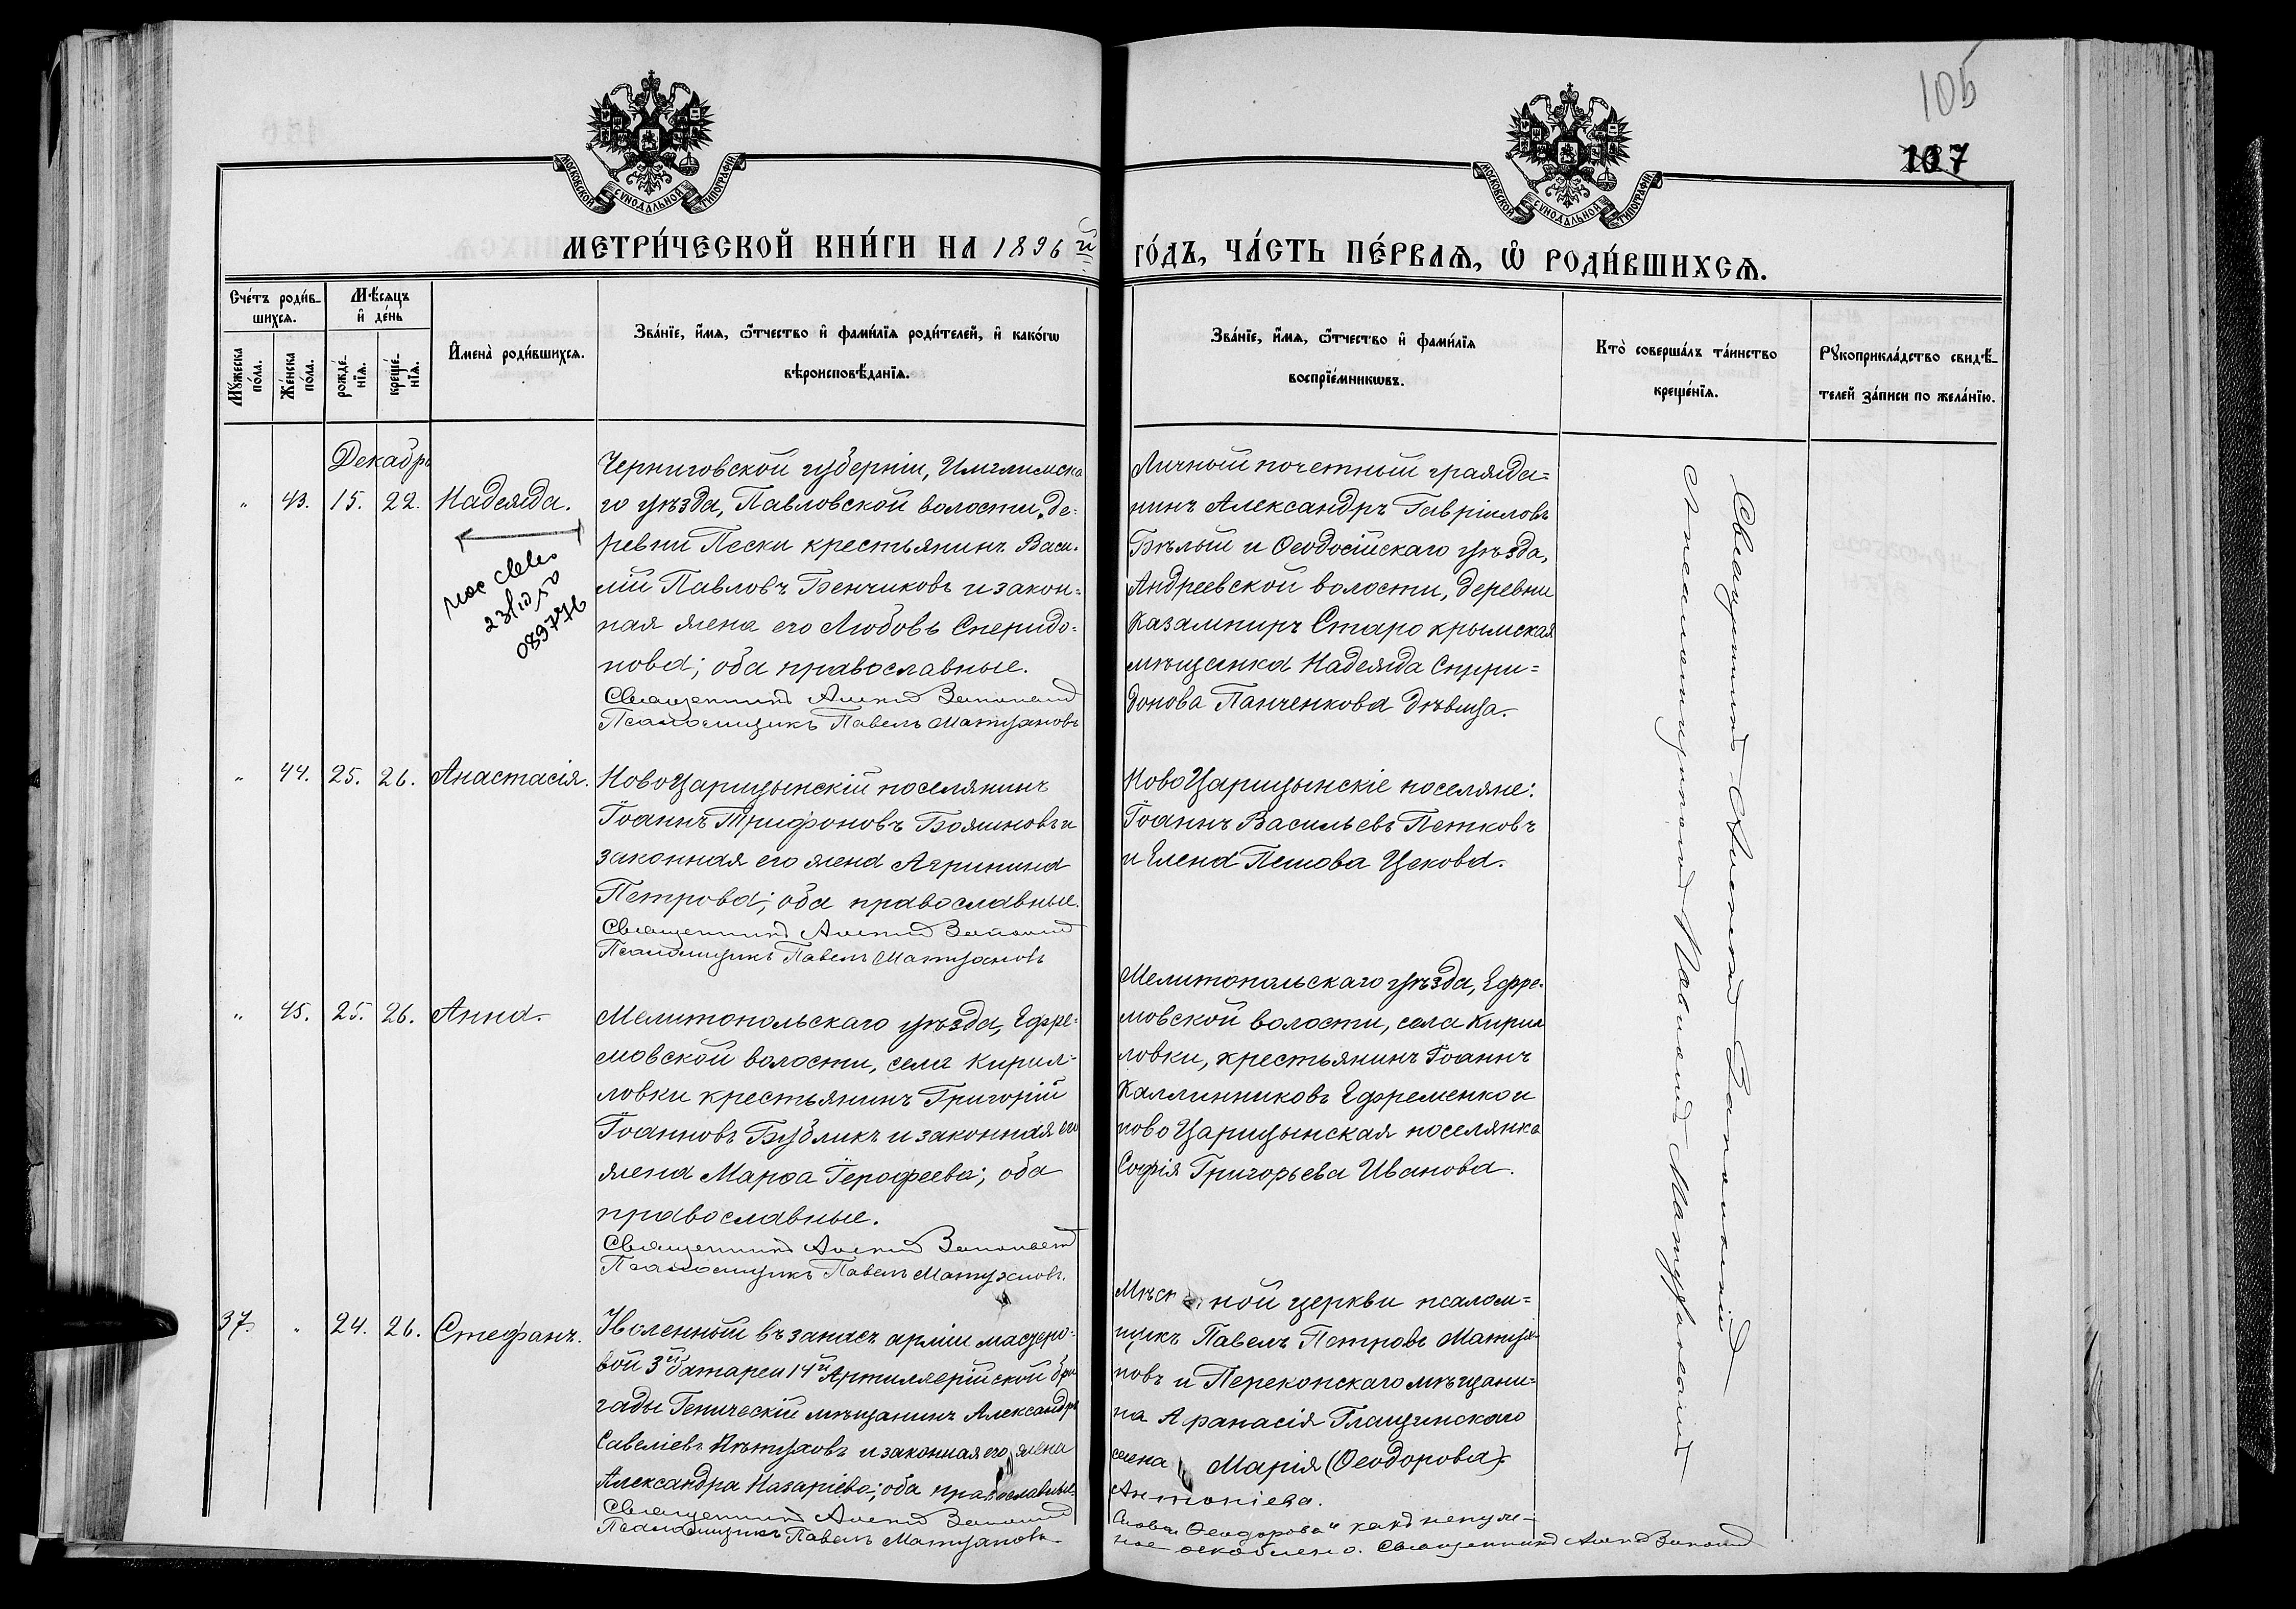 105
107
МОСКОВСКОЙ СѴНОДАЛЬНОЙ ТИПОГРАФІИ
МОСКОВСКОЙ СѴНОДАЛЬНОЙ ТИПОГРАФІИ
МЕТРИ́ЧЕСКОЙ КНИ́ГИ НА 1896 й
ГО́ДЪ, ЧА́СТЬ ПЕ́РВАѦ, Ѽ РОДИ́ВШИХСѦ.
Сче́тъ роди́в-
шихсѧ.
Мꙋ́жеска
по́ла.
Же́нска
по́ла.
Мѣ́сѧцъ
и҆ де́нь
рожде́-
нїѧ.
креще́-
нїѧ.
И҆мена̀ роди́вшихсѧ.
Зва́нїе, и҆́мѧ, ѻ҆́тчество и҆ фами́лїѧ роди́телей, и҆ како́гѡ
вѣроисповѣ́данїѧ.
Зва́нїе, и҆́мѧ, ѻ҆́тчество и҆ фами́лїѧ
воспрїе́мникѡвъ.
Кто̀ соверша́лъ та́инство
креще́нїѧ.
Рꙋкоприкла́дство свидѣ́-
телей за́писи по жела́нїю.
Декабрь
" 43. 15. 22. Надежда.
23/IX 50
089776
Черниговской губерніи,
го уѣзда, Павловской волости, де-
ревни Пески крестьянинъ Васи-
лій Павловъ Бенчиковъ и закон-
ная жена его Любовь Спиридо-
нова; оба православные.
Священникъ
Псаломщикъ Павелъ Матузановъ
Личный почетный гражда-
нинъ Александръ Гавріиловъ
Бѣлый и Ѳеодосійскаго уѣзда,
Андреевской волости, деревни
Казампиръ Старо крымская
мѣщанка Надежда Спири-
донова Панченкова дѣвица.
" 44. 25. 26. Анастасія.
НовоЦарицынскій поселянинъ
Іоаннъ Трифоновъ и
законная его жена Агрипина
Петрова; оба православные.
Священникъ
Псаломщикъ Павелъ Матузановъ
НовоЦарицынскіе поселяне:
Іоаннъ Васильевъ Петковъ
и Елена Пенова Цекова.
" 45. 25. 26. Анна.
Мелитопольскаго уѣзда, Ефре-
мовской волости, села Кирил-
ловки крестьянинъ Григорій
Іоанновъ Бубликъ и законная его
жена Марѳа Іерофеева; оба
православные.
Священникъ
Псаломщикъ Павелъ Матузановъ.
Мелитопольскаго уѣзда, Ефре-
мовской волости, села Кирил
ловки, крестьянинъ Іоаннъ
Каллинниковъ Ефременко и
ново Царицынская поселянка
Софія Григорьева Иванова.
37. " 24. 26. Стефанъ.
Уволенный въ запасъ арміи мастеро-
вой 3й батареи 14й Артиллерійской бри
гады Геническій мѣщанинъ Александръ
Савеліевъ и законная его жена
Александра Назаріева; оба православные.
Священникъ
Псаломщикъ Павелъ Матузановъ
Мѣстной церкви псалом-
щикъ Павелъ Петровъ Матуза-
новъ и Перекопскаго мѣщани-
на Афанасія Глащинскаго
жена Марія (Ѳеодорова)
Антоніева.
Слово „Ѳеодорова" какъ ненуж-
ное оскоблено. Священникъ
Священникъ
Псаломщикъ Павелъ Матузановъ